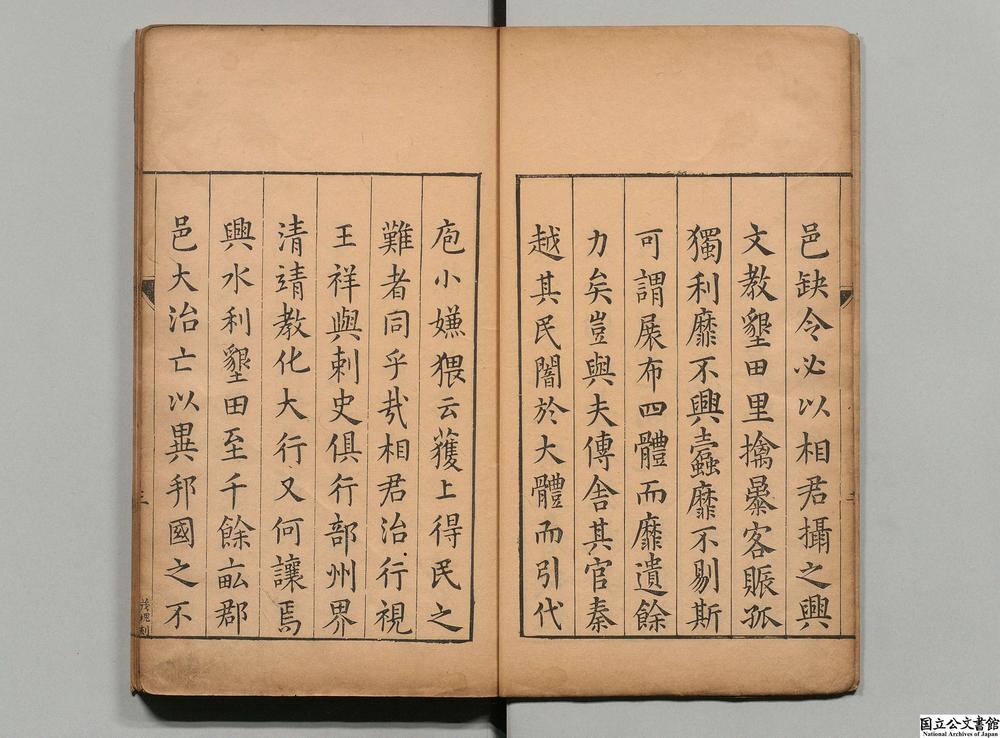 邑缺令必以相君攝之興
文教墾田里擒暴客賑孤
獨利靡不興蠹靡不剔斯
可謂展布四體而靡遺餘
力矣豈與夫傳舍其官秦
越其民闇於大體而引代
庖小嫌猥云獲上得民之
難者同乎㢤相君治行視
王祥與刺史俱行部州界
清靖教化大行又何讓焉
興水利墾田至千餘畝郡
邑大治亡以異邦國之不
三
国立公文書館
National Archives of Japan